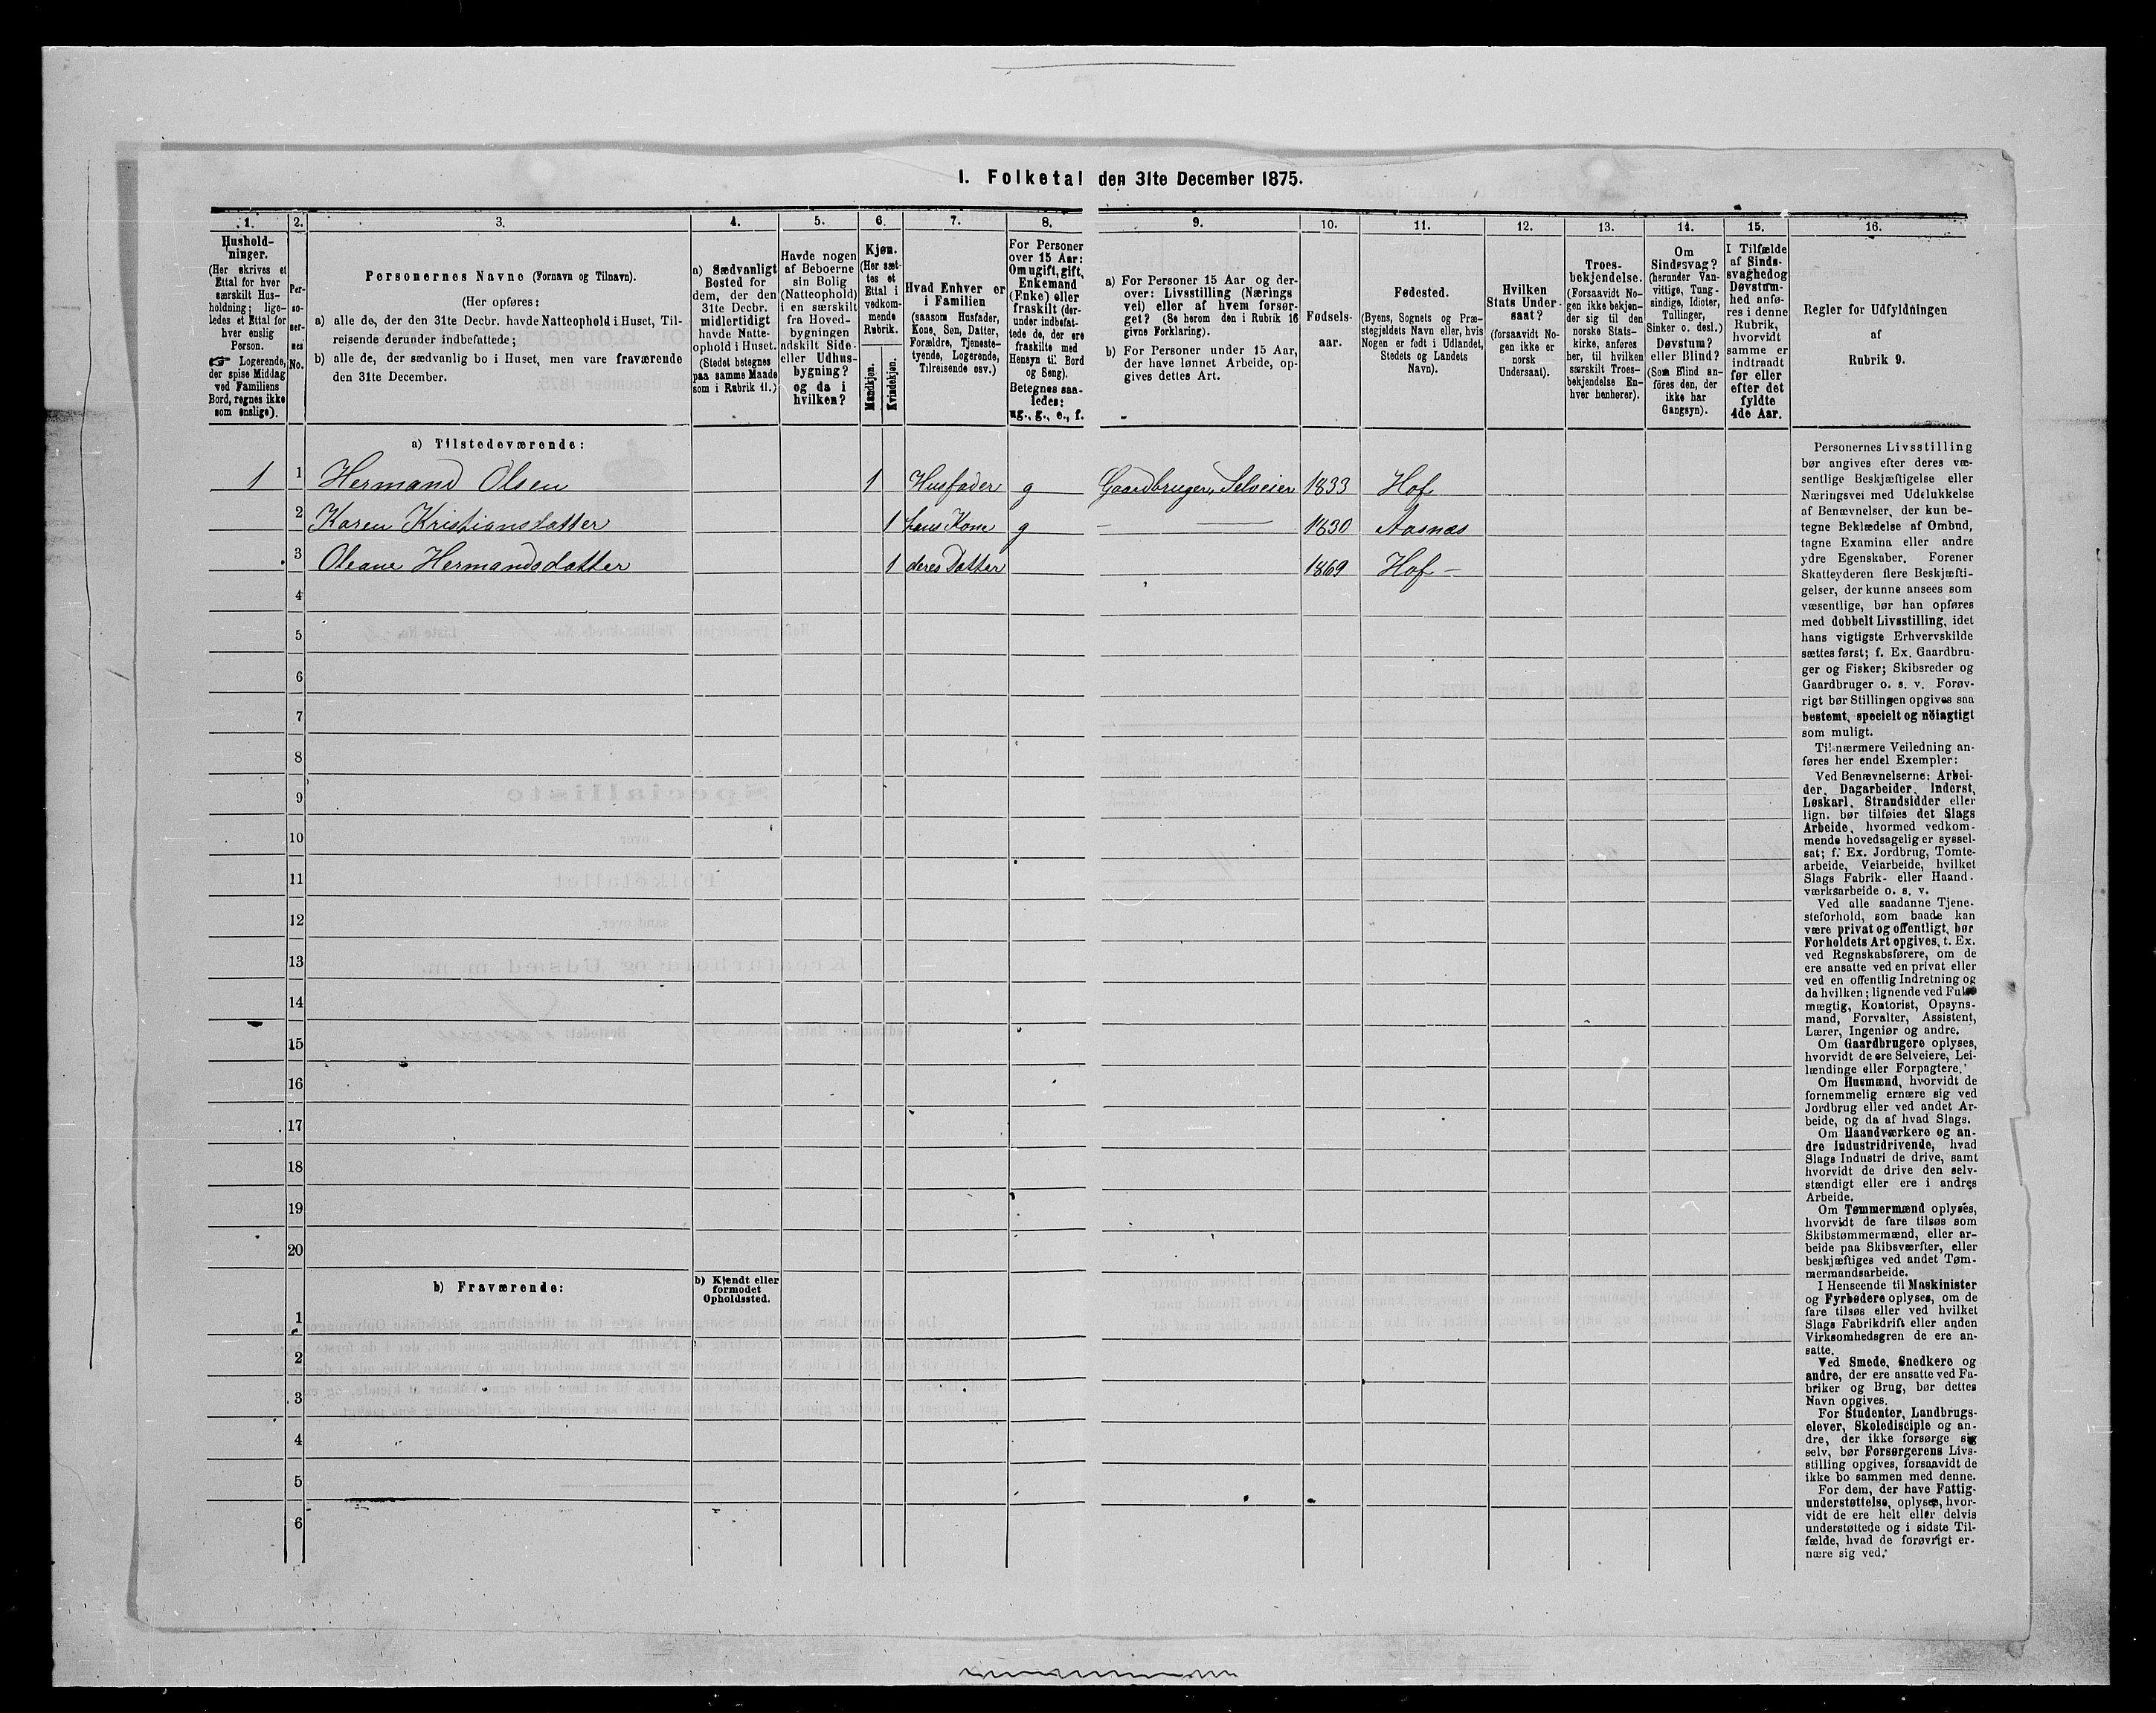 1. Folketal den 31te December 1875.
1.
2.
3.
4.
5.
6.
7.
8.
9.
10.
11.
12.
13.
14.
15.
16.
Hushold-
ninger.
(Her skrives et
Ettal for hver
særskilt Hus-
holdning; lige-
ledes et Ettal for
hver enslig
Person.
☞ Logerende,
der spise Middag
ved Familiens
Bord, regnes ikke
som enslige).
Per-
so-
ner-
nes
No.
Personernes Navne (Fornavn og Tilnavn).
(Her opføres:
a) alle de, der den 31te Decbr. havde Natteophold i Huset, Til-
reisende derunder indbefattede;
b) alle de, der sædvanlig bo i Huset, men vare fraværende
den 31te December.
a) Sædvanligt
Bosted for
dem, der den
31te Decbr.
midlertidigt
havde Natte-
ophold i Huset.
(Stedet betegnes
paa samme Maade
som i Rubrik 11.)
Havde nogen
af Beboerne
sin Bolig
(Natteophold)
i en særskilt
fra Hoved-
bygningen
adskilt Side-
eller Udhus-
bygning?
og da i
hvilken?
Kjøn.
(Her sæt-
tes et
Ettal i
vedkom-
mende
Rubrik.
Mandkjøn.
Kvindekjøn.
Hvad Enhver er
i Familien
(saasom Husfader,
Kone, Søn, Datter,
Forældre, Tjeneste-
tyende, Logerende,
Tilreisende osv.)
For Personer
over 15 Aar:
Om ugift, gift,
Enkemand
(Enke) eller
fraskilt (der-
under indbefat-
tede de, der ere
fraskilte med
Hensyn til Bord
og Seng).
Betegnes saa-
ledes:
ug., g., e., f.
a) For Personer 15 Aar og der-
over: Livsstilling (Nærings
vei) eller af hvem forsør-
get? (Se herom den i Rubrik 16
givne Forklaring).
b) For Personer under 15 Aar,
der have lønnet Arbeide, op-
gives dettes Art.
Fødsels-
aar.
Fødested.
(Byens, Sognets og Præ-
stegjeldets Navn eller, hvis
Nogen er født i Udlandet,
Stedets og Landets
Navn).
Hvilken
Stats Under-
saat?
(forsaavidt No-
gen ikke er
norsk
Undersaat).
Troes-
bekjendelse.
(Forsaavidt No-
gen ikke bekjen-
der sig til den
norske Stats-
kirke, anføres
her, til hvilken
særskilt Troes-
bekjendelse En-
hver henhører).
Om
Sindssvag?
(herunder Van-
vittige, Tung-
sindige, Idioter,
Tullinger,
Sinker o. desl.)
Døvstum?
eller Blind?
(Som Blind an-
føres den, der
ikke har
Gangsyn).
I Tilfælde
af Sinds-
svaghed og
Døvstum-
hed anfø-
res i denne
Rubrik,
hvorvidt
samme er
indtraadt
før eller
efter det
fyldte
4de Aar.
Regler for Udfyldningen
af
Rubrik 9.
a) Tilstedeværende:
1 1 Hermand Olsen 1 Husfader g Gaardbruger, Selveier 1833 Hof
2 Karen Kristiansdatter 1 hans Kone g — — 1830 Aasnæs
3 Oleane Hermandsdatter 1 deres Datter 1869 Hof —
4
5
6
7
8
9
10
11
12
13
14
15
16
17
18
19
20
b) Fraværende:
b) Kjendt eller
formodet
Opholdssted.
1
2
3
4
5
6
Personernes Livsstilling
bør angives efter deres væ-
sentlige Beskjæftigelse eller
Næringsvei med Udelukkelse
af Benævnelser, der kun be-
tegne Beklædelse af Ombud,
tagne Examina eller andre
ydre Egenskaber. Forener
Skatteyderen flere Beskjæfti-
gelser, der kunne ansees som
væsentlige, bør han opføres
med dobbelt Livsstilling, idet
hans vigtigste Erhvervskilde
sættes først; f. Ex. Gaardbru-
ger og Fisker; Skibsreder og
Gaardbruger o. s. v. Forøv-
rigt bør Stillingen opgives saa
bestemt, specielt og nøiagtigt
som muligt.
Til nærmere Veiledning an-
føres her endel Exempler:
Ved Benævnelserne: Arbei-
der, Dagarbeider, Inderst,
Løskarl, Strandsidder eller
lign. bør tilføies det Slags
Arbeide, hvormed vedkom-
mende hovedsagelig er syssel-
sat; f. Ex. Jordbrug, Tomte-
arbeide, Veiarbeide, hvilket
Slags Fabrik- eller Haand-
værksarbeide o. s. v.
Ved alle saadanne Tjene-
steforhold, som baade kan
være privat og offentligt, bør
Forholdets Art opgives, t. Ex.
ved Regnskabsførere, om de
ere ansatte ved en privat eller
ved en offentlig Indretning og
da hvilken; lignende ved Fuld-
mægtig, Kontorist, Opsyns-
mand, Forvalter, Assistent,
Lærer, Ingeniør og andre.
Om Gaardbrugere oplyses,
hvorvidt de ere Selveiere, Lei-
lændinge eller Forpagtere.
Om Husmænd, hvorvidt de
fornemmelig ernære sig ved
Jordbrug eller ved andet Ar-
beide, og da af hvad Slags.
Om Haandværkere og an-
dre Industridrivende, hvad
Slags Industri de drive, samt
hvorvidt de drive den selv-
stændigt eller ere i andres
Arbeide.
Om Tømmermænd oplyses,
hvorvidt de fare tilsøs som
Skibstømmermænd, eller ar-
beide paa Skibsværfter, eller
beskjæftiges ved andet Tøm-
mermandsarbeide.
I Henseende til Maskinister
og Fyrbødere oplyses, om de
fare tilsøs eller ved hvilket
Slags Fabrikdrift eller anden
Virksomhedsgren de ere an-
satte.
Ved Smede, Snedkere og
andre, der ere ansatte ved Fa-
briker og Brug, bør dettes
Navn opgives.
For Studenter, Landbrugs-
elever, Skoledisciple og an-
dre, der ikke forsørge sig
selv, bør Forsørgerens Livs-
stilling opgives, forsaavidt de
ikke bo sammen med denne.
For dem, der have Fattig-
understøttelse, oplyses, hvor-
vidt de ere helt eller delvis
understøttede og i sidste Til-
fælde, hvad de forøvrigt er-
nære sig ved.